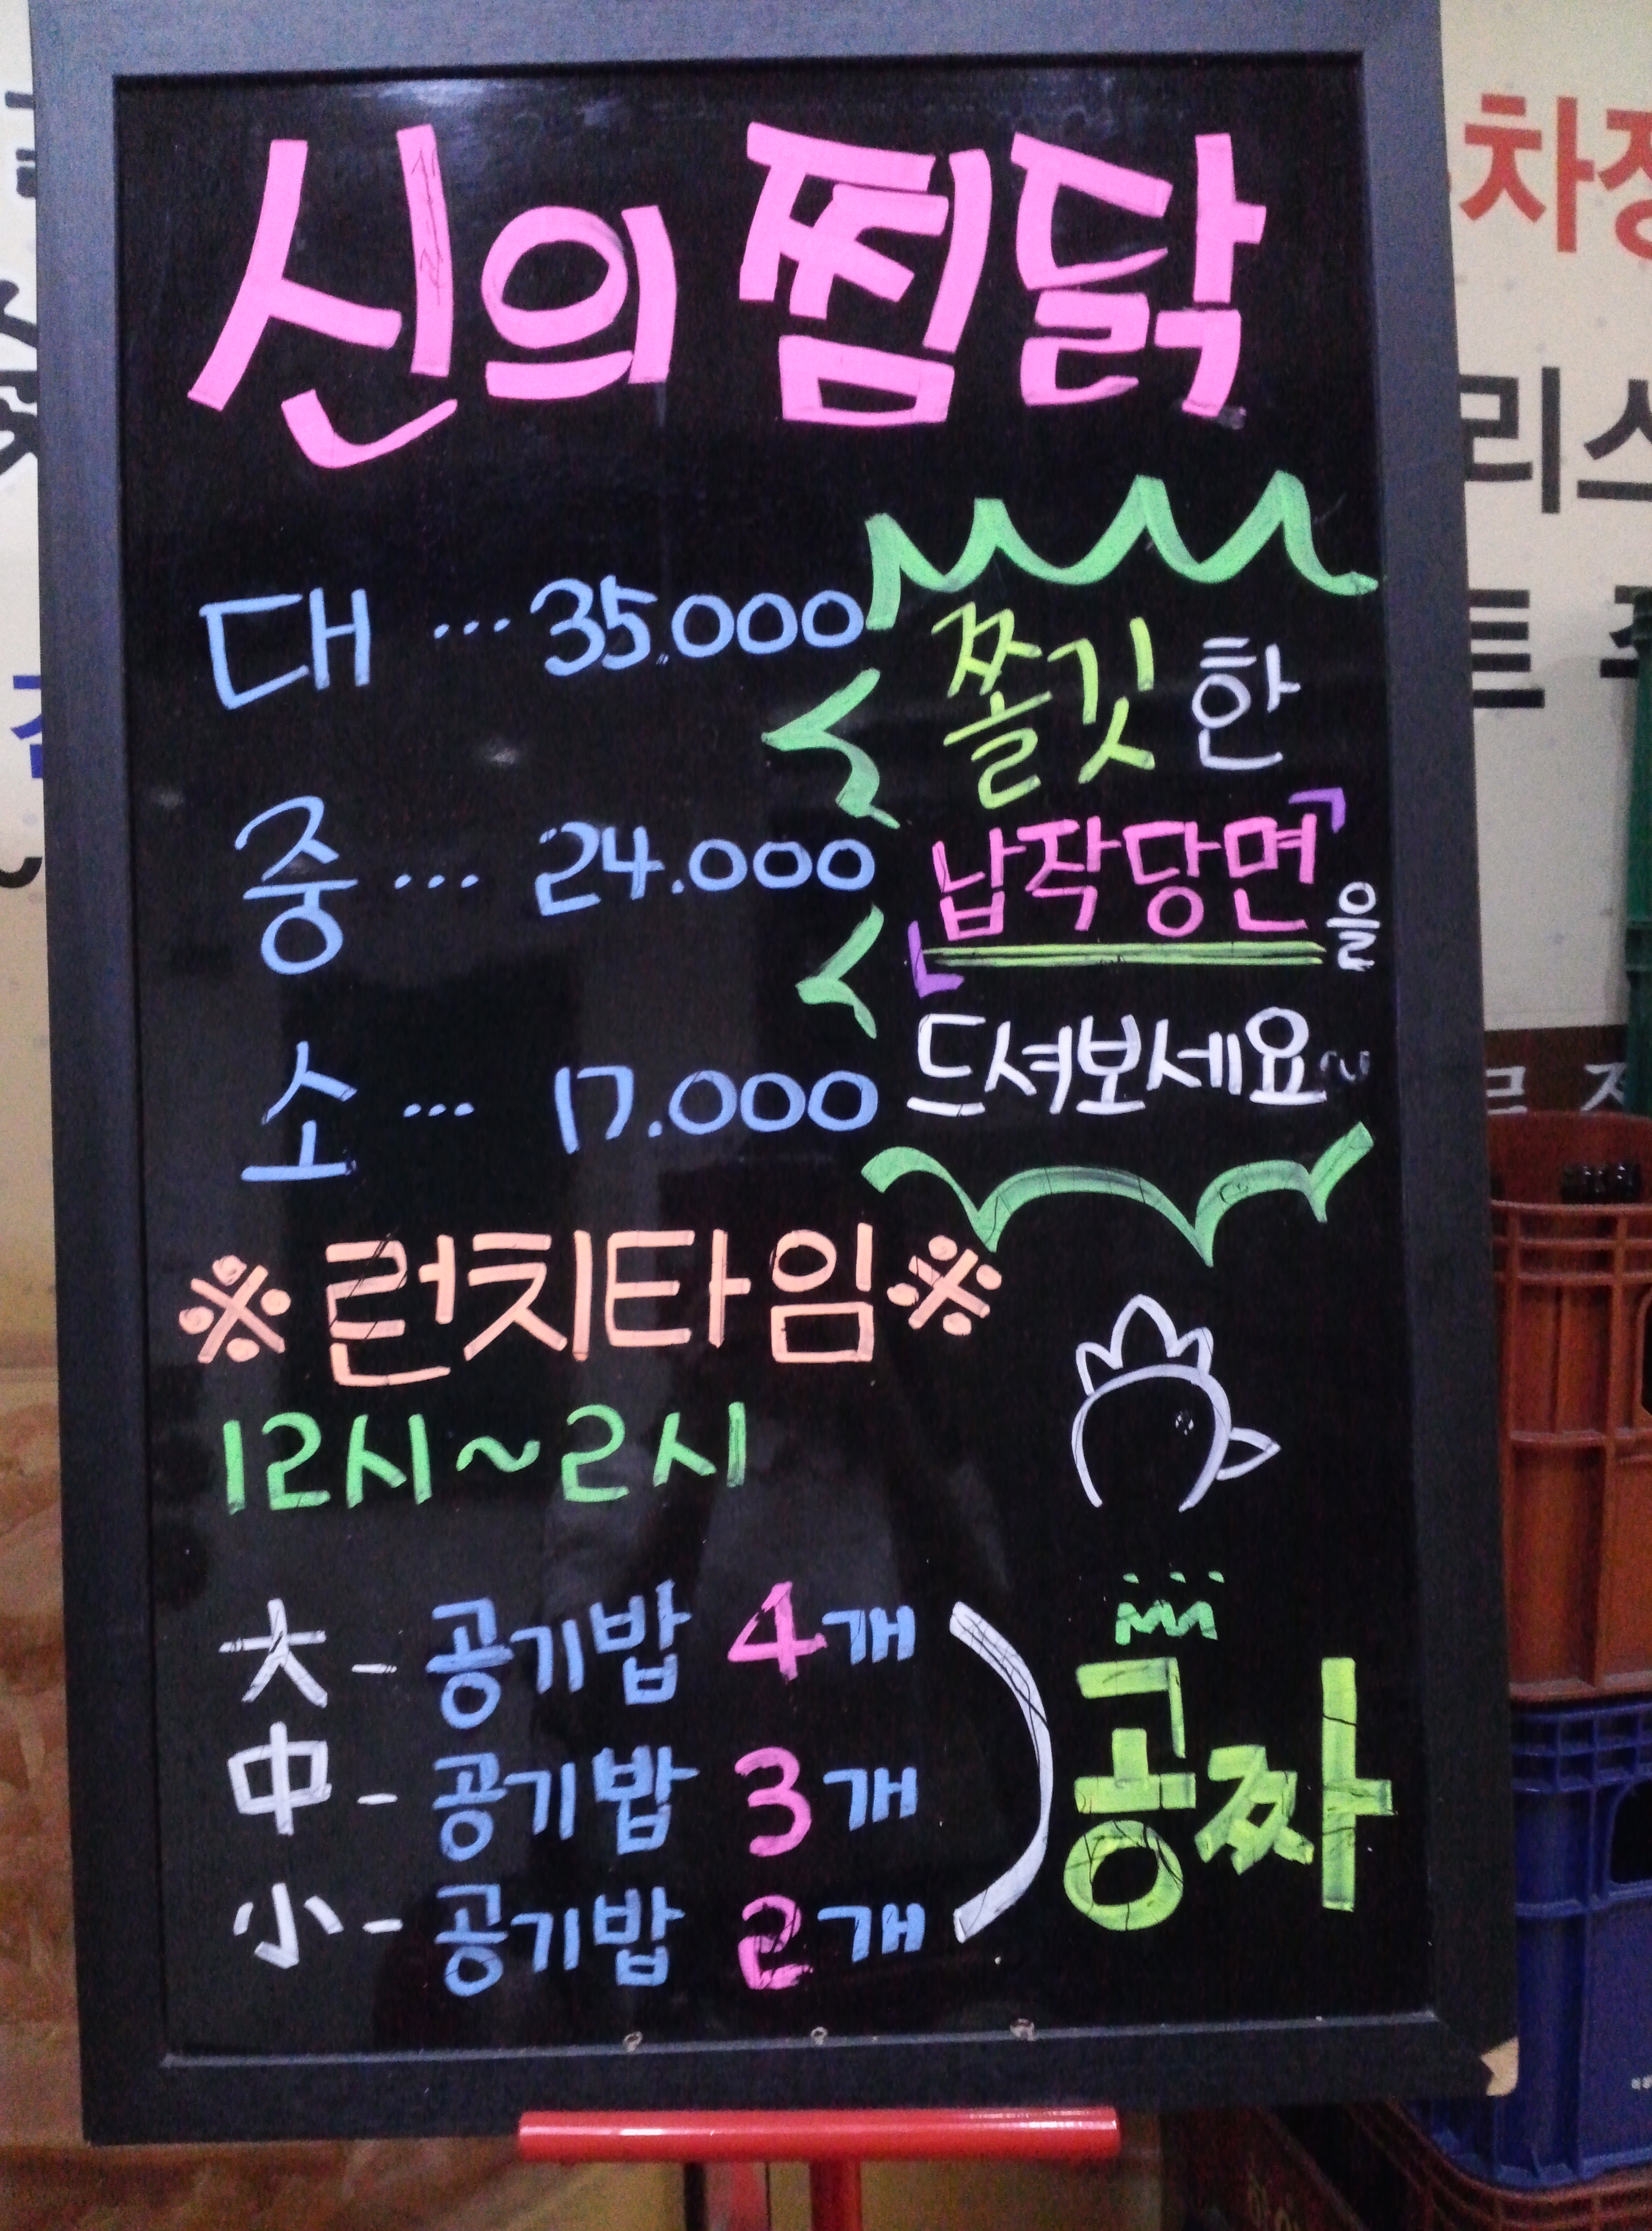 신의 찜닭
대 ... 35.000
중 ... 24.000
소 ... 17.000
쫄깃한
「납작당면」을
드셔보세요~
※런치타임※
12시~2시
大 - 공기밥 4개
中 - 공기밥 3개
小 - 공기밥 2개
공짜
차
리스
트